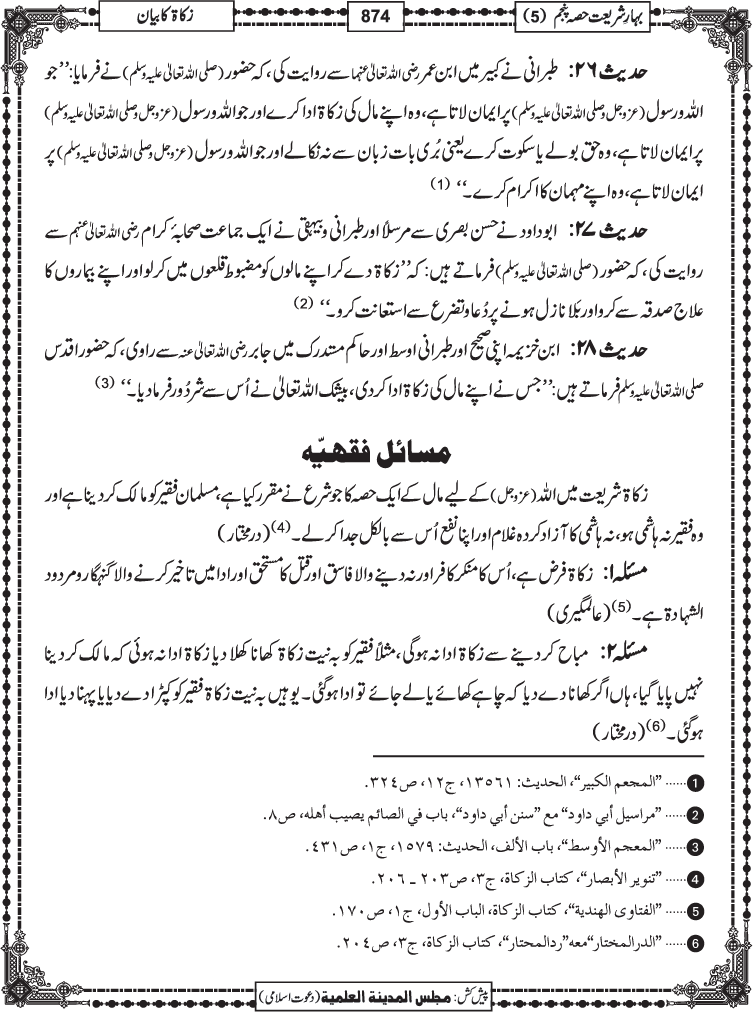 بہارِ شریعت حصہ پنجم (5)
874
زکاۃ کا بیان
حدیث ۲۶: طبرانی نے کبیر میں ابن عمر رضی اللہ تعالیٰ عنہما سے روایت کی، کہ حضور (صلی اللہ تعالیٰ علیہ وسلم) نے فرمایا: ’’جو
اللہ و رسول (عزوجل وصلی اللہ تعالیٰ علیہ وسلم) پر ایمان لاتا ہے، وہ اپنے مال کی زکاۃ ادا کرے اور جو اللہ و رسول (عزوجل وصلی اللہ تعالیٰ علیہ وسلم)
پر ایمان لاتا ہے، وہ حق بولے یا سکوت کرے یعنی بُری بات زبان سے نہ نکالے اور جو اللہ و رسول (عزوجل وصلی اللہ تعالیٰ علیہ وسلم) پر
ایمان لاتا ہے، وہ اپنے مہمان کا اکرام کرے۔‘‘ (1)
حدیث ۲۷: ابو داود نے حسن بصری سے مرسلاً اور طبرانی و بیہقی نے ایک جماعت صحابۂ کرام رضی اللہ تعالیٰ عنہم سے
روایت کی، کہ حضور (صلی اللہ تعالیٰ علیہ وسلم) فرماتے ہیں: کہ ’’زکاۃ دے کر اپنے مالوں کو مضبوط قلعوں میں کر لو اور اپنے بیماروں کا
علاج صدقہ سے کرو اور بَلا نازل ہونے پر دُعا و تضرع سے استعانت کرو۔‘‘ (2)
حدیث ۲۸: ابن خزیمہ اپنی صحیح اور طبرانی اوسط اور حاکم مستدرک میں جابر رضی اللہ تعالیٰ عنہ سے راوی، کہ حضور اقدس
صلی اللہ تعالیٰ علیہ وسلم فرماتے ہیں: ’’جس نے اپنے مال کی زکاۃ ادا کر دی، بیشک اللہ تعالیٰ نے اُس سے شر دُور فرما دیا۔‘‘ (3)
مسائل فقہیّہ
زکاۃ شریعت میں اللہ (عزوجل) کے لیے مال کے ایک حصہ کا جو شرع نے مقرر کیا ہے، مسلمان فقیر کو مالک کر دینا ہے اور
وہ فقیر نہ ہاشمی ہو، نہ ہاشمی کا آزاد کردہ غلام اور اپنا نفع اُس سے بالکل جدا کر لے۔ (4) (درمختار)
مسئلہ ۱: زکاۃ فرض ہے، اُس کا منکر کافر اور نہ دینے والا فاسق اور قتل کا مستحق اور ادا میں تاخیر کرنے والا گنہگار و مردود
الشہادۃ ہے۔ (5) (عالمگیری)
مسئلہ ۲: مباح کر دینے سے زکاۃ ادا نہ ہوگی، مثلاً فقیر کو بہ نیت زکاۃ کھانا کھلا دیا زکاۃ ادا نہ ہوئی کہ مالک کر دینا
نہیں پایا گیا، ہاں اگر کھانا دے دیا کہ چاہے کھائے یا لے جائے تو ادا ہوگئی۔ یوہیں بہ نیت زکاۃ فقیر کو کپڑا دے دیا یا پہنا دیا ادا
ہوگئی۔ (6) (درمختار)
1 ...... ”المجعم الكبير“، الحديث: ١٣٥٦١، ج١٢، ص٣٢٤.
2 ...... ”مراسيل أبي داود“ مع ”سنن أبي داود“، باب في الصائم يصيب أهله، ص٨.
3 ...... ”المعجم الأوسط“، باب الألف، الحديث: ١٥٧٩، ج١، ص٤٣١.
4 ...... ”تنوير الأبصار“، كتاب الزكاة، ج٣، ص٢٠٣ ـ ٢٠٦.
5 ...... ”الفتاوى الهندية“، كتاب الزكاة، الباب الأول، ج١، ص١٧٠.
6 ...... ”الدرالمختار“معه ”ردالمحتار“، كتاب الزكاة، ج٣، ص٢٠٤.
پیش کش: مجلس المدينة العلمية (دعوت اسلامی)